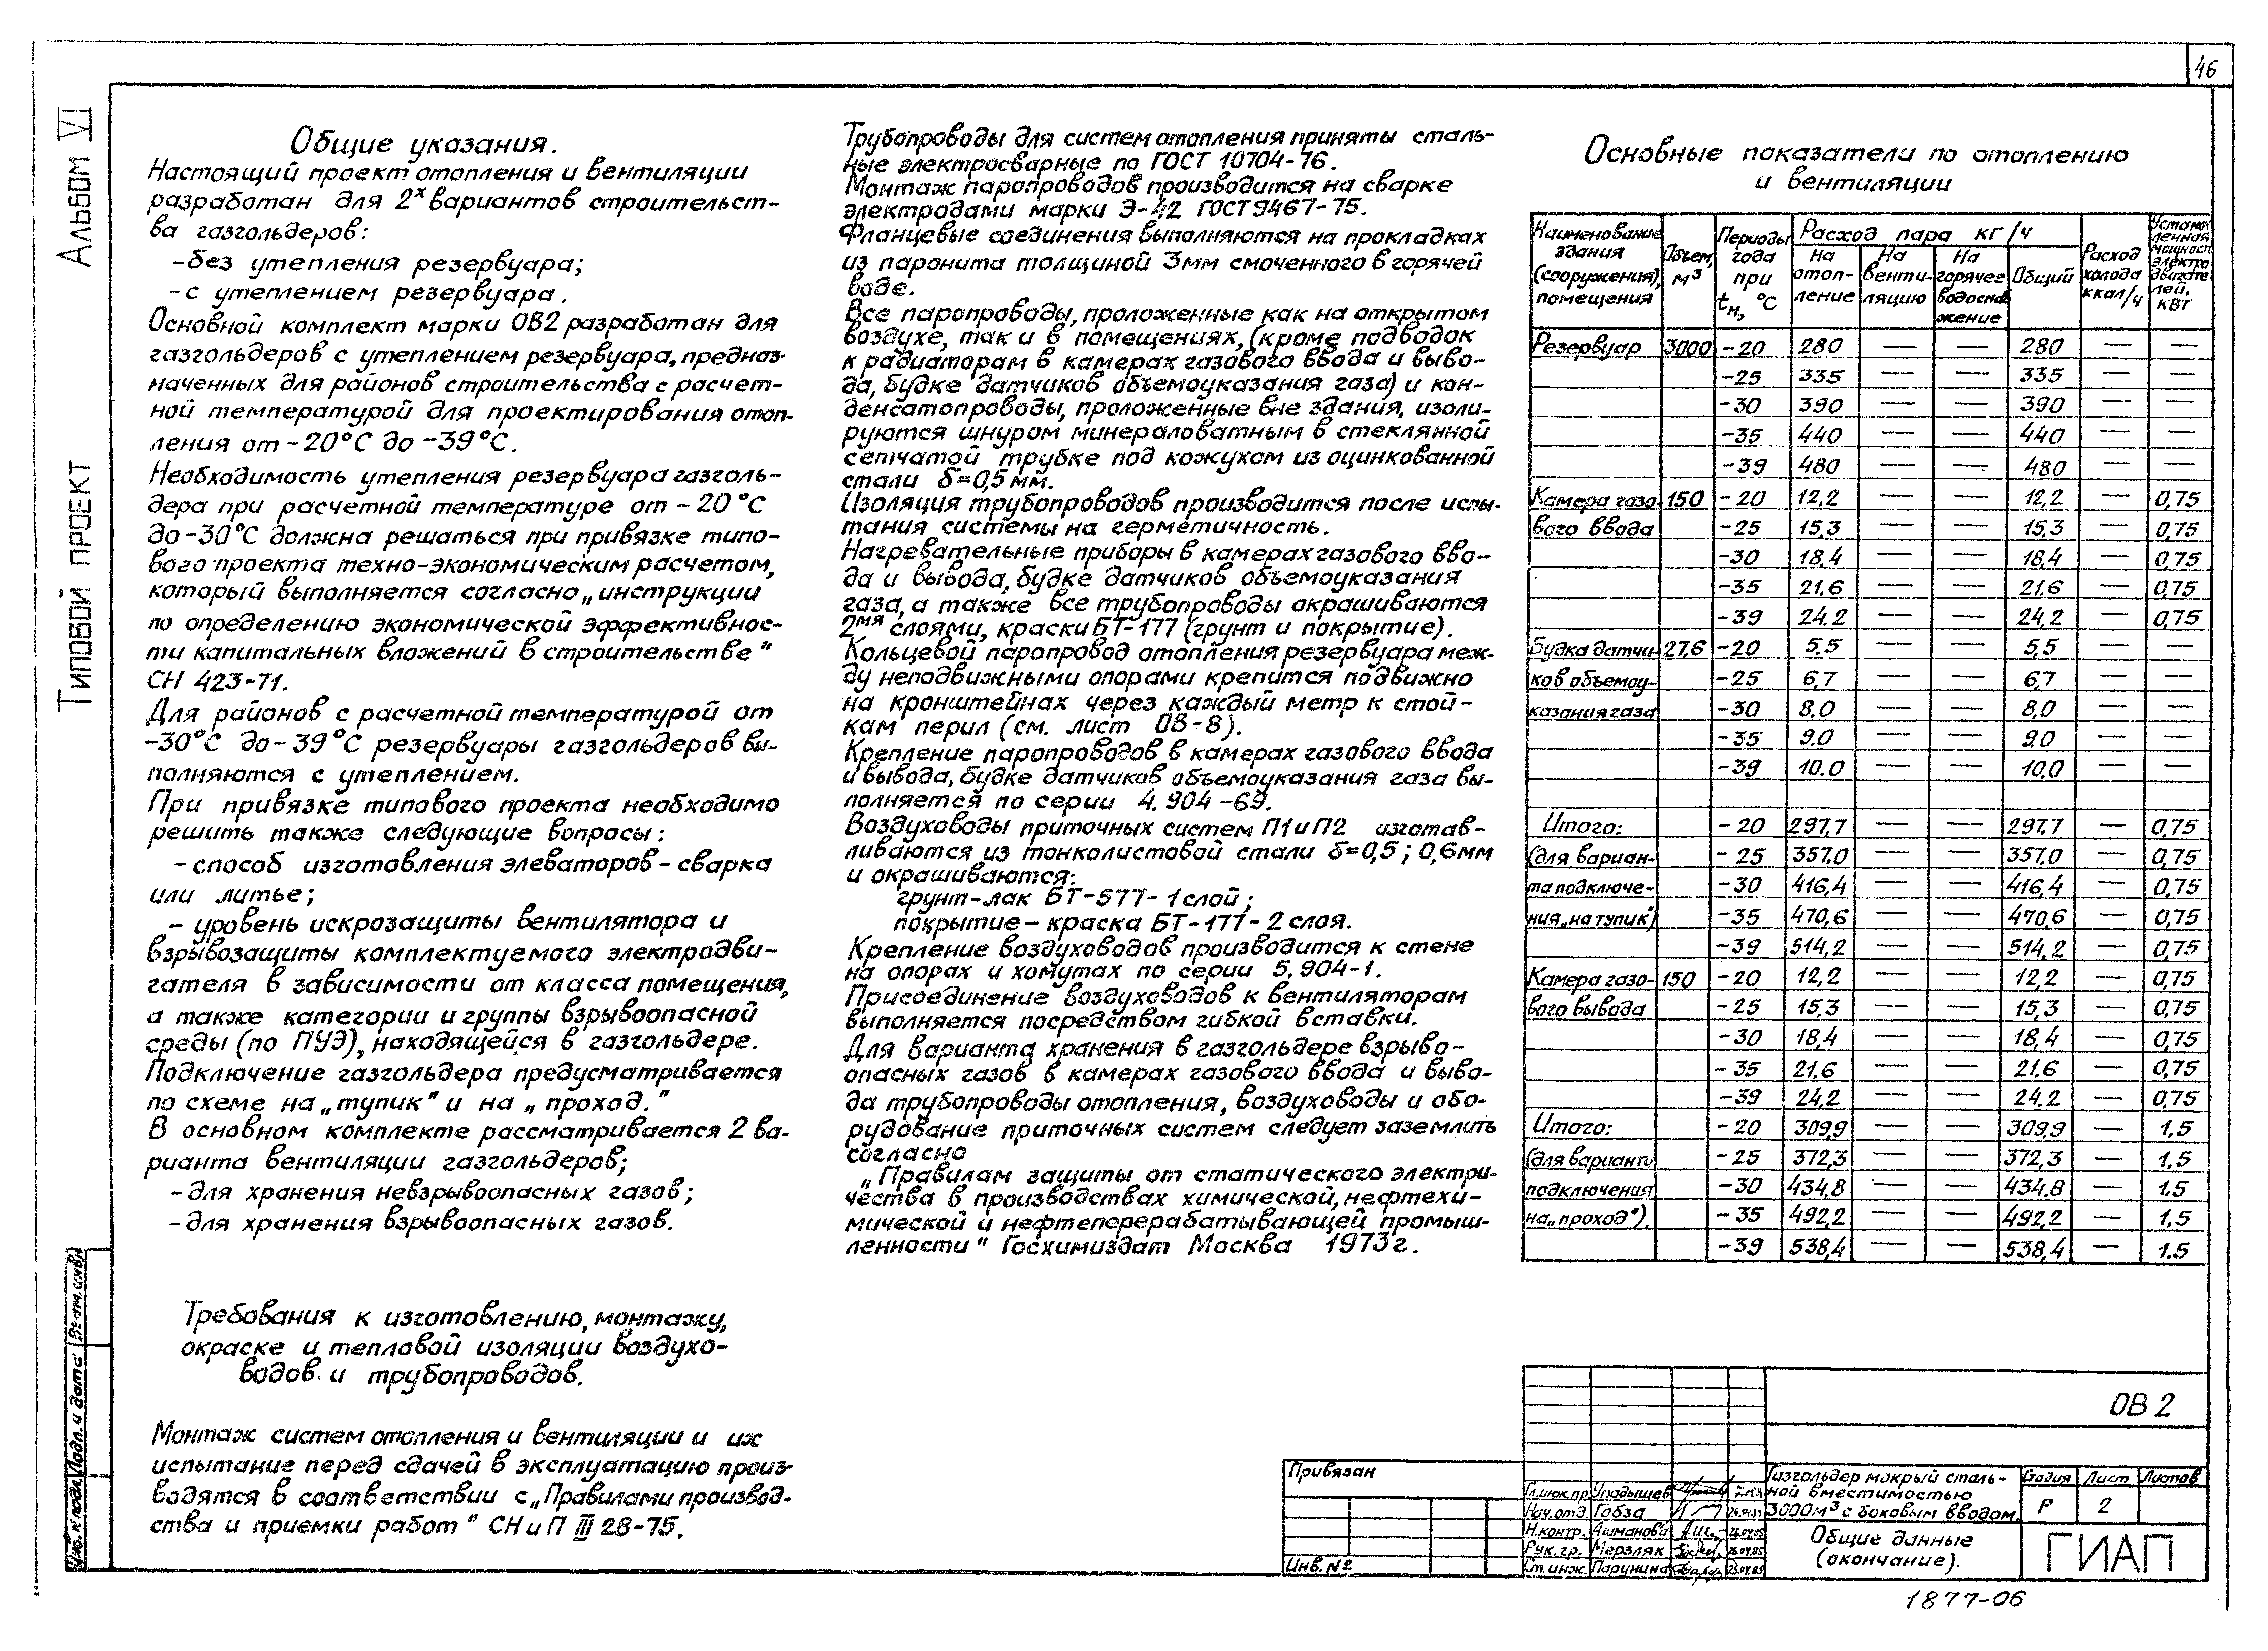 46
Альбом VI
Типовой проект
Общие указания.
Настоящий проект отопления и вентиляции
разработан для 2х вариантов строительст-
ва газгольдеров:
-без утепления резервуара;
-с утеплением резервуара.
Основной комплект марки ОВ2 разработан для
газгольдеров с утеплением резервуара, предназ-
наченных для районов строительства с расчет-
ной температурой для проектирования отоп-
ления от -20°С до -39°С.
Необходимость утепления резервуара газголь-
дера при расчетной температуре от -20°С
до -30°С должна решаться при привязке типо-
вого проекта техно-экономическим расчетом,
который выполняется согласно „инструкции
по определению экономической эффективнос-
ти капитальных вложений в строительстве"
СН 423-71.
Для районов с расчетной температурой от
-30°С до -39°С резервуары газгольдеров вы-
полняются с утеплением.
При привязке типового проекта необходимо
решить также следующие вопросы:
-способ изготовления элеваторов - сварка
или литье;
- уровень искрозащиты вентилятора и
взрывозащиты комплектуемого электродви-
гателя в зависимости от класса помещения,
а также категории и группы взрывоопасной
среды (по ПУЭ), находящейся в газгольдере.
Подключение газгольдера предусматривается
по схеме на „тупик" и на „проход."
В основном комплекте рассматривается 2 ва-
рианта вентиляции газгольдеров;
-для хранения невзрывоопасных газов;
-для хранения взрывоопасных газов.
Требования к изготовлению, монтажу,
окраске и тепловой изоляции воздухо-
водов и трубопроводов.
Монтаж систем отопления и вентиляции и их
испытание перед сдачей в эксплуатацию произ-
водятся в соответствии с „Правилами производ-
ства и приемки работ" СНиП III 28-75.
Трубопроводы для систем отопления приняты сталь-
ные электросварные по ГОСТ 10704-76.
Монтаж паропроводов производится на сварке
электродами марки Э-42 ГОСТ 9467-75.
Фланцевые соединения выполняются на прокладках
из паронита толщиной 3мм смоченного в горячей
воде.
Все паропроводы, проложенные как на открытом
воздухе, так и в помещениях, (кроме подводок
к радиаторам в камерах газового ввода и выво-
да, будке датчиков объемоуказания газа) и кон-
денсатопроводы, проложенные вне здания, изоли-
руются шнуром минераловатным в стеклянной
сетчатой трубке под кожухом из оцинкованной
стали δ=0,5 мм.
Изоляция трубопроводов производится после испы-
тания системы на герметичность.
Нагревательные приборы в камерах газового вво-
да и вывода, будке датчиков объемоуказания
газа, а также все трубопроводы окрашиваются
2мя слоями, краски БТ-177 (грунт и покрытие).
Кольцевой паропровод отопления резервуара меж-
ду неподвижными опорами крепится подвижно
на кронштейнах через каждый метр к стой-
кам перил (см. лист ОВ-8).
Крепление паропроводов в камерах газового ввода
и вывода, будке датчиков объемоуказания газа вы-
полняется по серии 4.904-69.
Воздуховоды приточных систем П1 и П2 изготав-
ливаются из тонколистовой стали δ=0,5; 0,6мм
и окрашиваются:
грунт-лак БТ-577-1 слой;
покрытие-краска БТ-177-2 слоя.
Крепление воздуховодов производится к стене
на опорах и хомутах по серии 5.904-1.
Присоединение воздуховодов к вентиляторам
выполняется посредством гибкой вставки.
Для варианта хранения в газгольдере взрыво-
опасных газов в камерах газового ввода и выво-
да трубопроводы отопления, воздуховоды и обо-
рудование приточных систем следует заземлить
согласно
„Правилам защиты от статического электри-
чества в производствах химической, нефтехи-
мической и нефтеперерабатывающей промыш-
ленности" Госхимиздат Москва 1973г.
Основные показатели по отоплению
и вентиляции
Наименование здания (сооружения), помещения | Объем, м³ | Периоды года при tн, °С | Расход пара кг/ч | На отоп-ление | На венти-ляцию | На горячее водоснаб жение | Общий | Расход холода ккал/ч | Установ ленная мощност электро двигате лей. кВт
Резервуар 3000 -20 280 — — 280 — —
-25 335 — — 335 — —
-30 390 — — 390 — —
-35 440 — — 440 — —
-39 480 — — 480 — —
Камера газо- 150 -20 12,2 — — 12,2 — 0,75
вого ввода -25 15,3 — — 15,3 — 0,75
-30 18,4 — — 18,4 — 0,75
-35 21,6 — — 21,6 — 0,75
-39 24,2 — — 24,2 — 0,75
Будка датчи- 27,6 -20 5,5 — — 5,5 — —
ков объемоу- -25 6,7 — — 6,7 — —
казания газа -30 8,0 — — 8,0 — —
-35 9.0 — — 9.0 — —
-39 10.0 — — 10,0 — —
Итого: -20 297,7 — — 297,7 — 0,75
(для вариан- -25 357,0 — — 357,0 — 0,75
та подключе- -30 416,4 — — 416,4 — 0,75
ния „на тупик") -35 470,6 — — 470,6 — 0,75
-39 514,2 — — 514,2 — 0,75
Камера газо- 150 -20 12,2 — — 12,2 — 0,75
вого вывода -25 15,3 — — 15,3 — 0,75
-30 18,4 — — 18,4 — 0,75
-35 21,6 — — 21,6 — 0,75
-39 24,2 — — 24,2 — 0,75
Итого: -20 309,9 — — 309,9 — 1,5
(для варианта -25 372,3 — — 372,3 — 1,5
подключения -30 434,8 — — 434,8 — 1.5
на „проход"). -35 492,2 — — 492,2 — 1,5
-39 538,4 — — 538,4 — 1.5
Инв. № подл. Подп. и дата Взам. инв. №
Привязан
Инв. №
ОВ 2
Гл.инж.пр. Упадышев
Нач.отд. Гобза
Н.контр. Ашманова 26.04.85
Рук.гр. Мерзляк 26.04.85
Ст.инж. Парунина 25.04.85
Газгольдер мокрый сталь-
ной вместимостью
3000м³ с боковым вводом.
Стадия Лист Листов
Р 2
Общие данные
(окончание).
ГИАП
1877-06